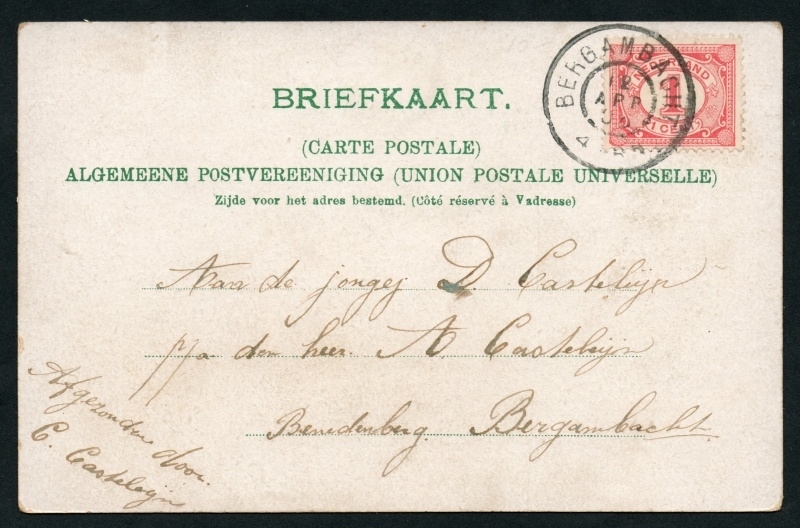 BRIEFKAART.
(CARTE POSTALE)
ALGEMEENE POSTVEREENIGING (UNION POSTALE UNIVERSELLE)
Zijde voor het adres bestemd. (Côté réservé à Vadresse)
BERGAMBACHT
12
APR
4
NEDERLAND
1
CENT
Aan de jongej D. Casteleijn
p/a den heer A Casteleijn
Benedenberg Bergambacht
Afgezonden door.
C. Casteleijn